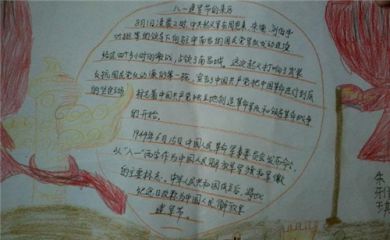 八一建军节的来历
8月1日凌晨2时,中共起义军在周恩来、朱德、刘伯承
对驻 的国民党军发动进攻
经过四个多小时的激战,占领了南昌城。这次起义打响了武装
反抗国民党反动派的第一枪,宣告了中国共产党把中国革命进行到底
的坚定立场
标志着中国共产党独立地创造革命军队和领导革命战争
的开始。
1949年6月15日,中国人民革命军事委员会发布命令,
以“八一”两字作为中国人民解放军军旗和军徽
的主要标志。中华人民共和国成立后,将此
纪念日改称为中国人民解放军
建军节。